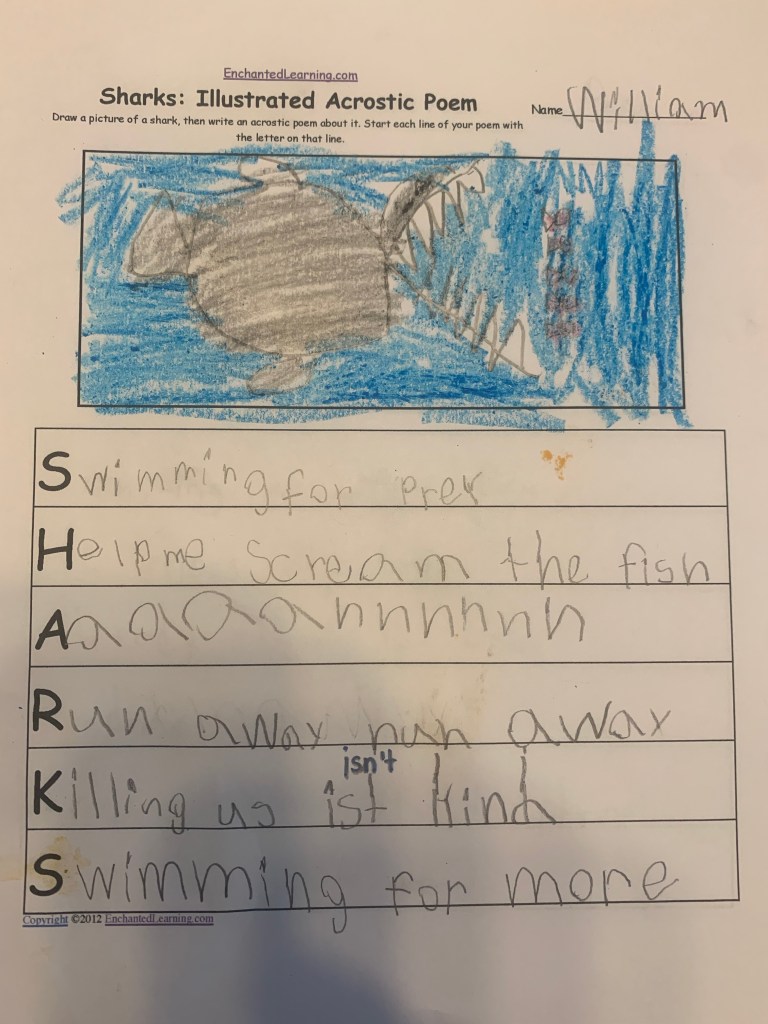 EnchantedLearning.com
Sharks: Illustrated Acrostic Poem
Name William
Draw a picture of a shark, then write an acrostic poem about it. Start each line of your poem with
the letter on that line.
Swimming for prey
Help me scream the fish
Aaaaahhhhhh
Run away run away
isn't
Killing us ist kind
Swimming for more
Copyright ©2012 EnchantedLearning.com